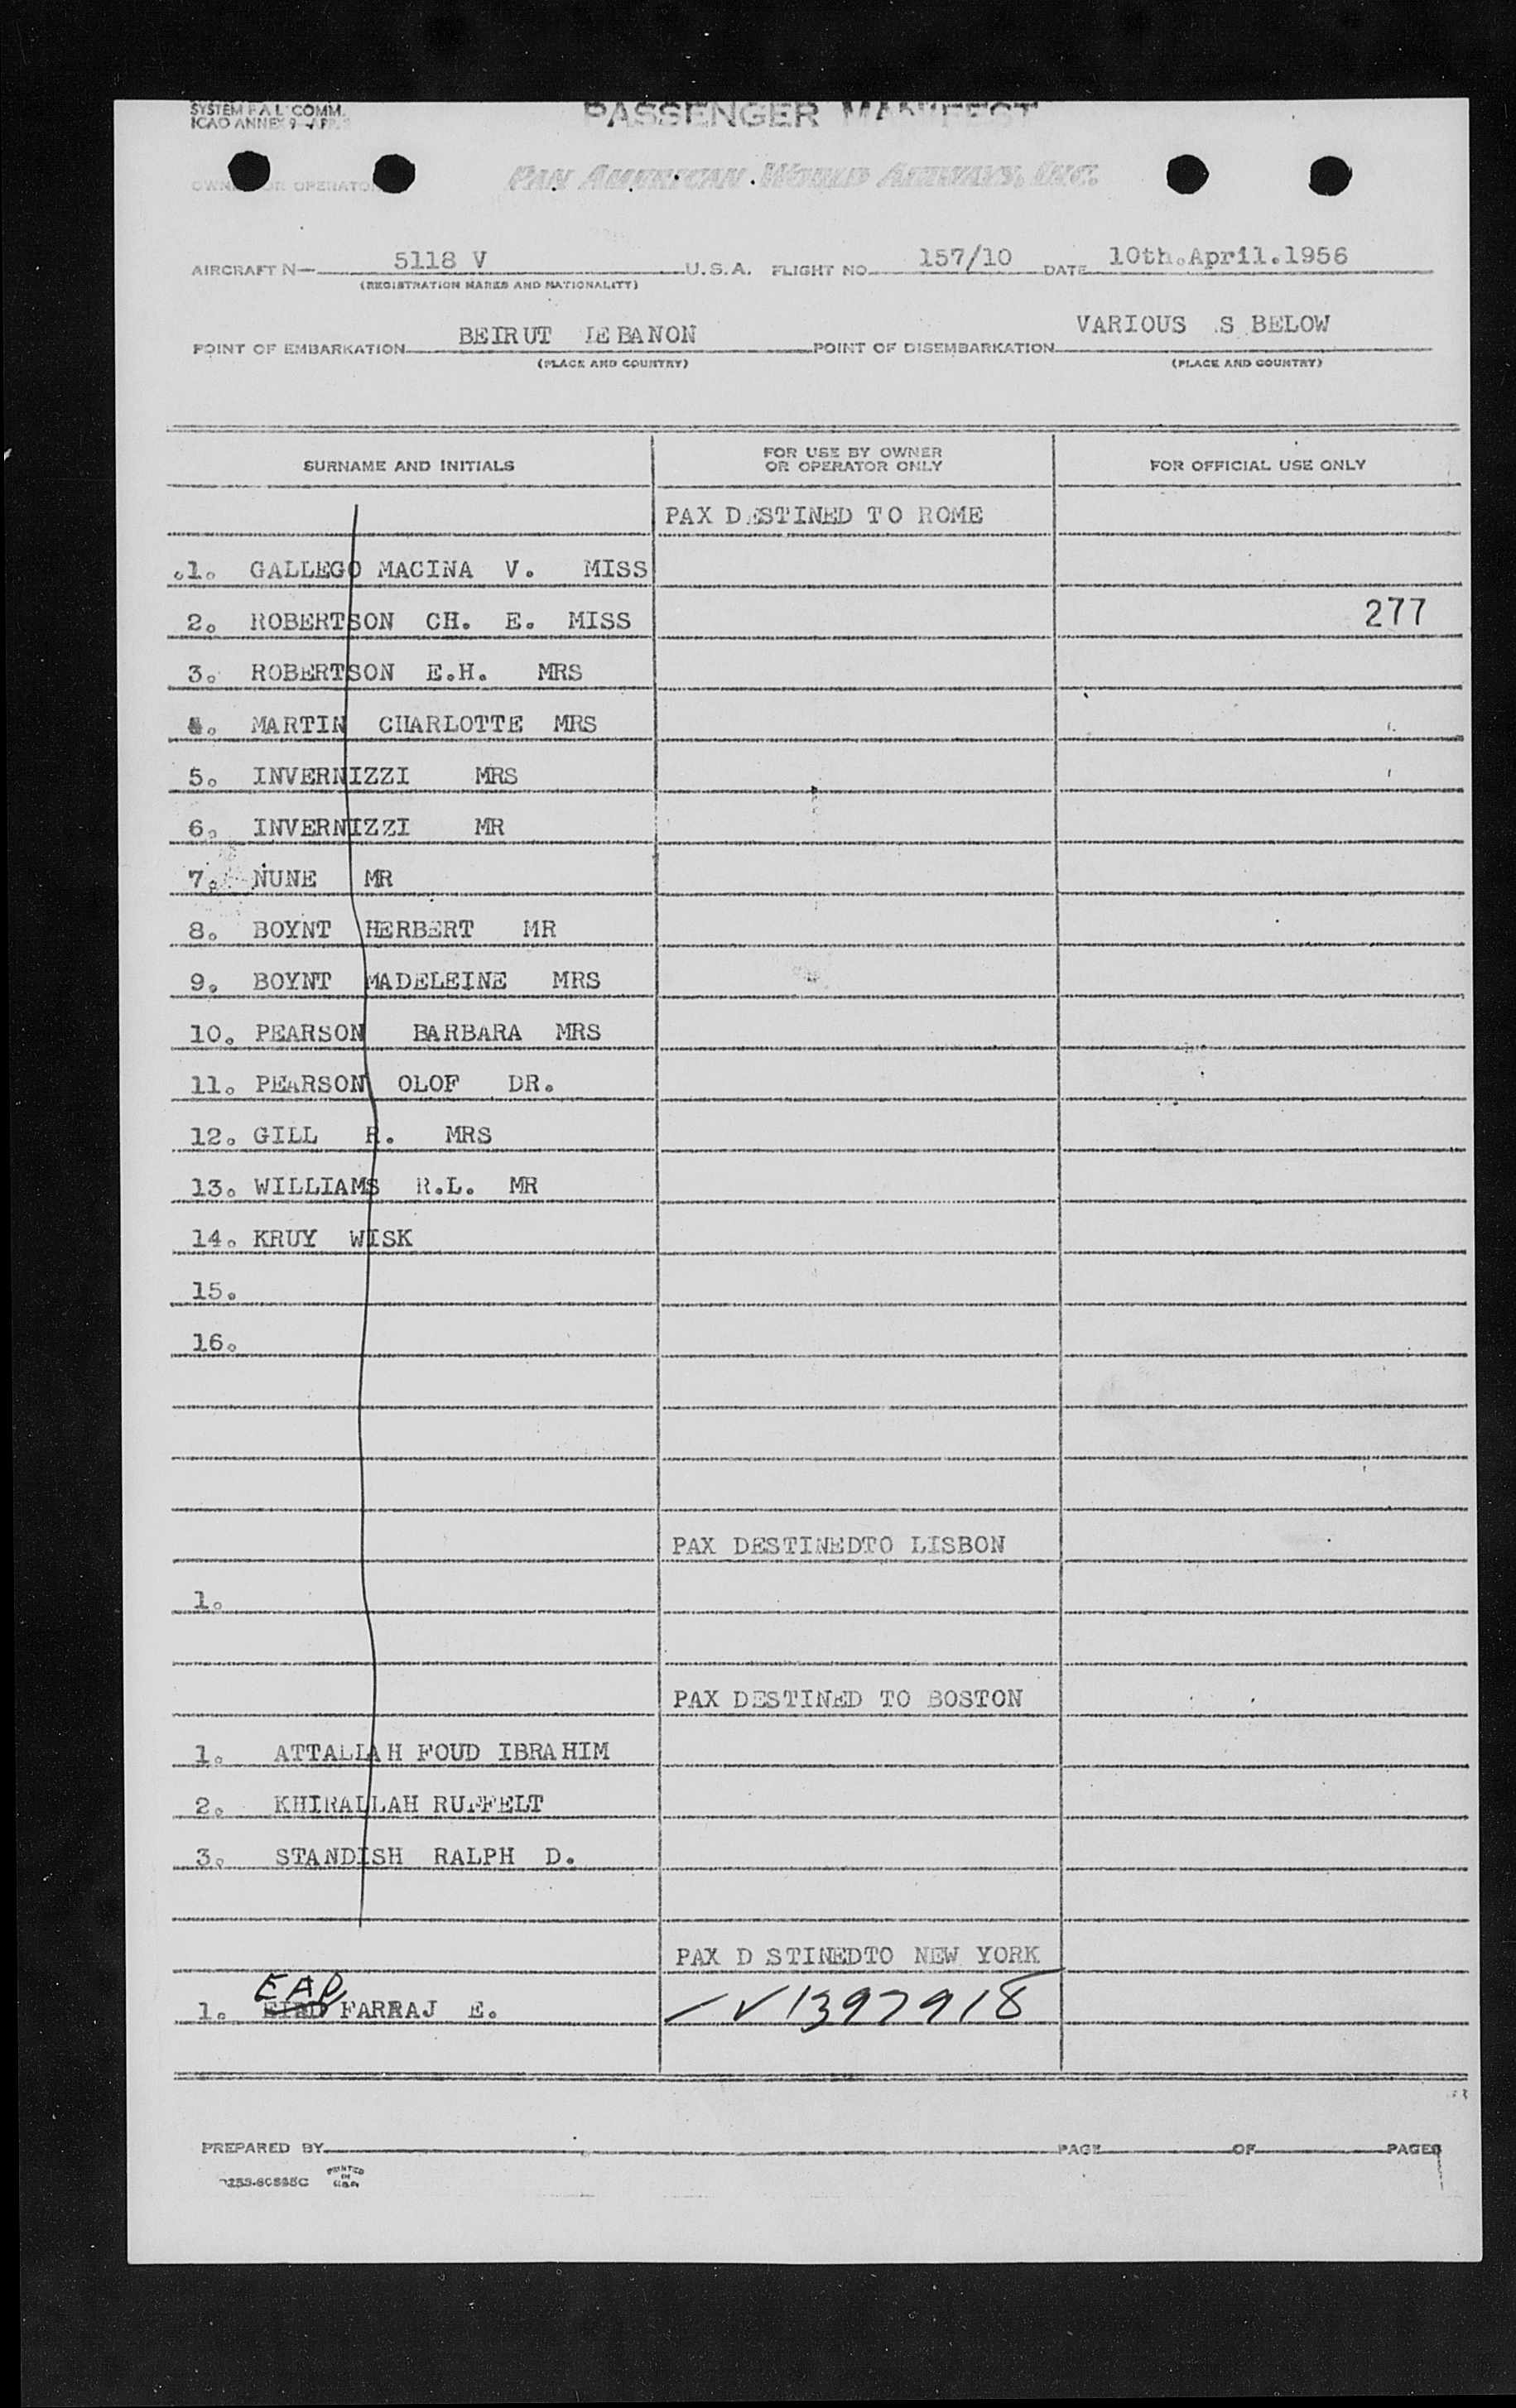 SYSTEM F.A.L. COMM.
ICAO ANNEX 9
PASSENGER MANIFEST
OWNER OR OPERATOR
PAN AMERICAN WORLD AIRWAYS, INC.
AIRCRAFT N— 5118 V U.S.A. FLIGHT NO. 157/10 DATE 10th.April.1956
(REGISTRATION MARKS AND NATIONALITY)
POINT OF EMBARKATION BEIRUT LEBANON POINT OF DISEMBARKATION VARIOUS S BELOW
(PLACE AND COUNTRY) (PLACE AND COUNTRY)
SURNAME AND INITIALS FOR USE BY OWNER OR OPERATOR ONLY FOR OFFICIAL USE ONLY
PAX DESTINED TO ROME
.1. GALLEGO MACINA V. MISS
2. ROBERTSON CH. E. MISS 277
3. ROBERTSON E.H. MRS
4. MARTIN CHARLOTTE MRS
5. INVERNIZZI MRS
6. INVERNIZZI MR
7. NUNE MR
8. BOYNT HERBERT MR
9. BOYNT MADELEINE MRS
10. PEARSON BARBARA MRS
11. PEARSON OLOF DR.
12. GILL R. MRS
13. WILLIAMS R.L. MR
14. KRUY WISK
15.
16.
PAX DESTINEDTO LISBON
1.
PAX DESTINED TO BOSTON
1. ATTALLAH FOUD IBRAHIM
2. KHIRALLAH RUFFELT
3. STANDISH RALPH D.
PAX D STINEDTO NEW YORK
EAD
1. FARRAJ E. ✓ V1397918
PREPARED BY PAGE OF PAGES
PRINTED IN U.S.A.